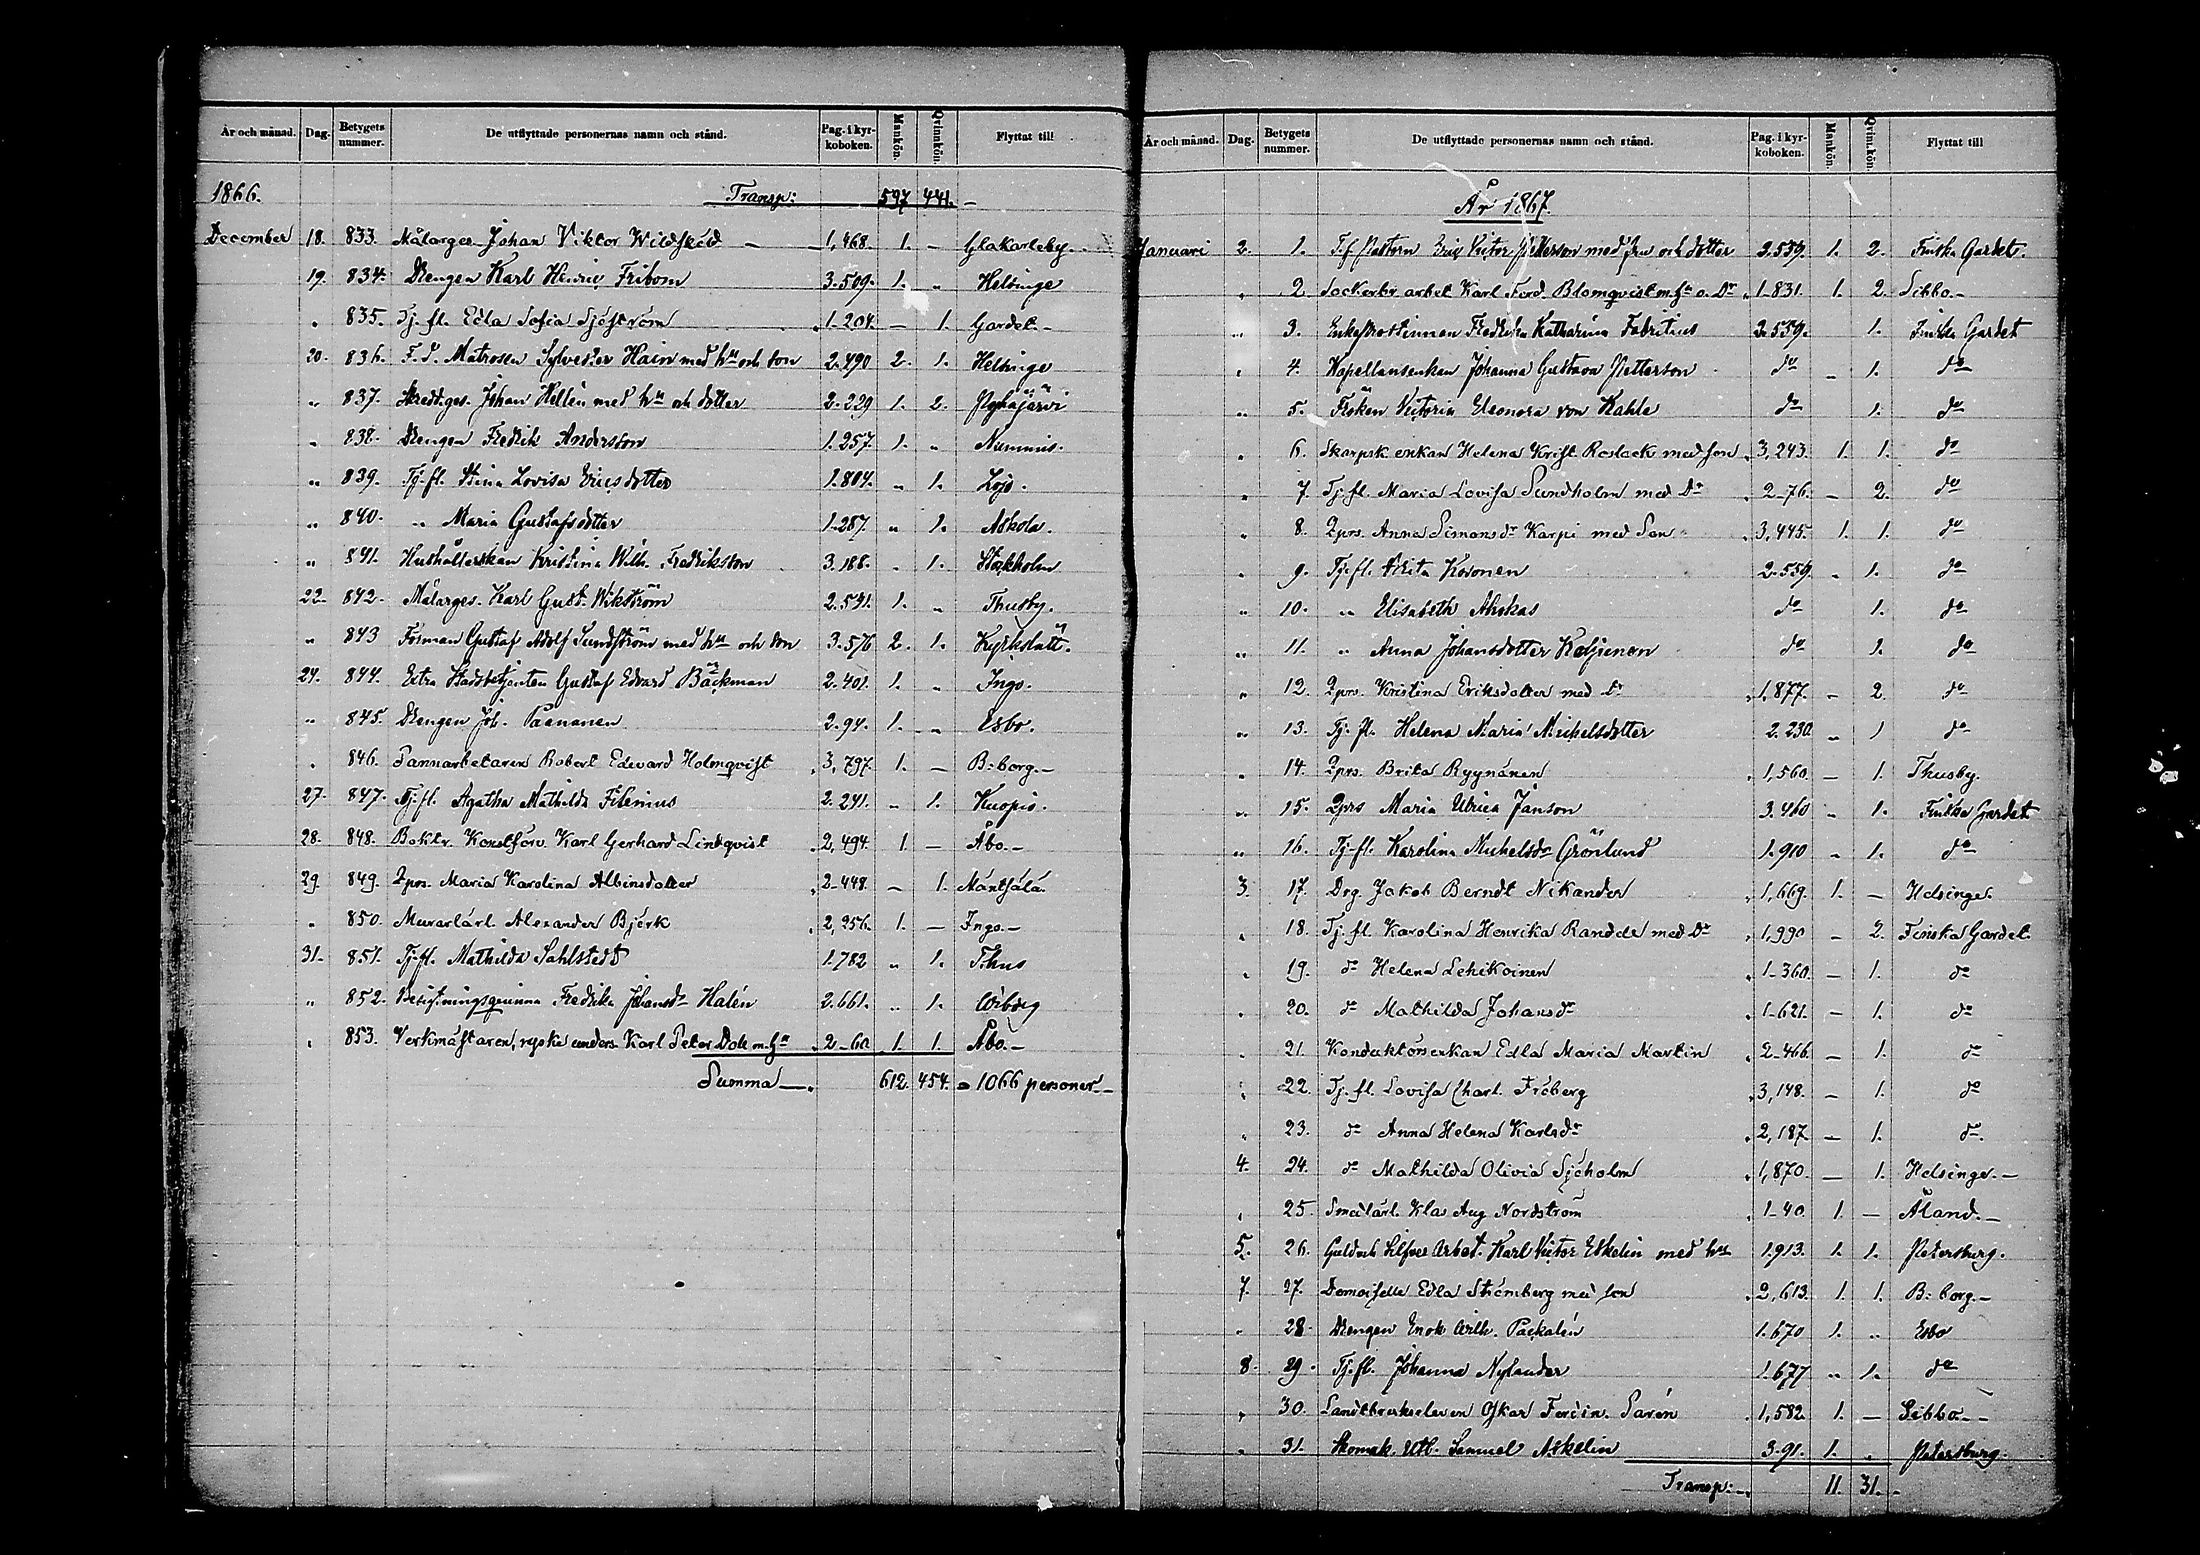 År och månad. Dag. Betygets nummer. De utflyttade personernas namn och stånd. Pag. i kyrkoboken. Mankön. Qvinnkön. Flyttat till
1866. Transp: 597 441. —
December 18. 833. Målarges. Johan Viktor Wildsköld — 1,468. 1. — Glakarleby.
19. 834. Drengen Karl Henric Fribom 3.509. 1. „ Helsinge
„ 835. Tj. fl. Edla Sofia Sjöström 1-204. — 1. Gardet—
20. 836. F.d. Matrosen Sylvester Hain med hu och son 2.490 2. 1. Helsinge
„ 837. Skredd.ges. Johan Hellén med hu och dotter 2.229 1. 2. Pyhäjärvi
„ 838. Drengen Fredrik Andersson 1.257. 1. „ Nummis.
„ 839. Tj. fl. Stina Lovisa Ericsdotter 1.804. „ 1. Lojo.
„ 840. „ Maria Gustafsdotter 1.287. „ 1. Askola.
„ 841. Hushållerskan Kristina Wilh. Fredriksson 3.188. „ 1. Stokholm
22. 842. Målarges. Karl Gust. Wikström 2.531. 1. „ Thusby.
„ 843 Forman Gustaf Adolf Sundström med hu och son 3.576 2. 1. Kyrkslätt.
24. 844. Extra Stadsbetjenten Gustaf Edvard Bäckman 2.401. 1. „ Ingo.
„ 845. Drengen Joh. Paananen 2.94. 1. „ Esbo.
„ 846. Pannarbetaren Robert Edvard Holmqvist 3,797. 1. — B:borg.—
27. 847. Tj. fl. Agatha Mathilda Filenius 2.241. „ 1. Kuopio.
28. 848. Boktr. Konstförv. Karl Gerhard Lindqvist 2,494. 1. — Åbo.—
29. 849. Qprs. Maria Karolina Albinsdotter 2-448. — 1. Mäntsälä.
„ 850. Murarlärl. Alexander Björk 2,256. 1. — Ingo.—
31. 851. Tj. fl. Mathilda Sahlstedt 1.782 „ 1. Thus
„ 852. Fredrika Johansdr Halén 2.661. „ 1. Wiborg
„ 853. Verkmästaren, ryske unders. Karl Peter Dole m. Hu 2-60. 1. 1. Åbo.—
Summa — 612. 454. = 1066 personer.—
År och månad. Dag. Betygets nummer. De utflyttade personernas namn och stånd. Pag. i kyrkoboken. Mankön. Qvinnkön. Flyttat till
År 1867.
Januari 2. 1. T.f. Pastorn Eric Victor Petterson med fru och dotter 2.559. 1. 2. Finska Gardet.
„ 2. Sockerbr. arbet. Karl Ferd. Blomqvist m. Hu o. Dr 1-831. 1. 2. Sibbo.—
„ 3. Enkeprostinnan Fredrika Katharina Fabritius 2.559. 1. Finska Gardet
„ 4. Kapellansenkan Johanna Gustava Petterson do „ 1. do
„ 5. Fröken Victoria Eleonora von Kahle do 1. do
„ 6. Skarpsk. enkan Helena Krist. Roslack med son 3,243. 1. 1. do
„ 7. Tj. fl. Maria Lovisa Sundholm med Dr 2-76. — 2. do
„ 8. Qprs. Anna Simonsdr Karpi med Son 3,445. 1. 1. do
„ 9. Tj. fl. Brita Kosonen 2.559. „ 1. do
„ 10. „ Elisabeth Ahokas do 1. do
„ 11. „ Anna Johansdotter Keljienen do 1. do
„ 12. Qprs. Kristina Eriksdotter med Dr 1,877. — 2. do
„ 13. Tj. fl. Helena Maria Michelsdotter 2.230. „ 1 do
„ 14. Qprs. Brita Ryynänen 1,560. — 1. Thusby.
„ 15. Qprs Maria Ulrica Janson 3.460 „ 1. Finska Gardet
„ 16. Tj. fl. Karolina Michelsdr Grönlund 1.910 „ 1. do
3. 17. Drg. Jakob Berndt Nikander 1,669. 1. — Helsinge.
„ 18. Tj. fl. Karolina Henrika Randde med Dr 1,990 — 2. Finska Gardet.
„ 19. do Helena Lehikoinen 1-360. — 1. do
„ 20. do Mathilda Johansdr 1-621. — 1. do
„ 21. Konduktörsenkan Edla Maria Martin 2-466. — 1. do
„ 22. Tj. fl. Lovisa Charl. Fröberg 3,148. — 1. do
„ 23. do Anna Helena Karlsdr 2,187 — 1. do.
4. 24. do Mathilda Olivia Sjöholm 1,870. — 1. Helsinge.—
„ 25. Smedlärl. Klas Aug Nordström 1-40. 1. — Åland.—
5. 26. Guld och Silfver Arbet. Karl Victor Eskelin med hu 1.913. 1. 1. Petersburg.
7. 27. Demoiselle Edla Strömberg med son 2,613. 1. 1. B:borg.—
„ 28. Drengen Enok Wilh. Packalén 1.670 1. „ Esbo
8. 29. Tj. fl. Johanna Nylander 1.677 „ 1. do
„ 30. Landtbrukseleven Oskar Ferdin. Sarén 1,582. 1. — Sibbo.—
„ 31. Skomak. Utl. Samuel Askelin 3.91. 1. „ Petersburg.
Transp:— 11. 31.—